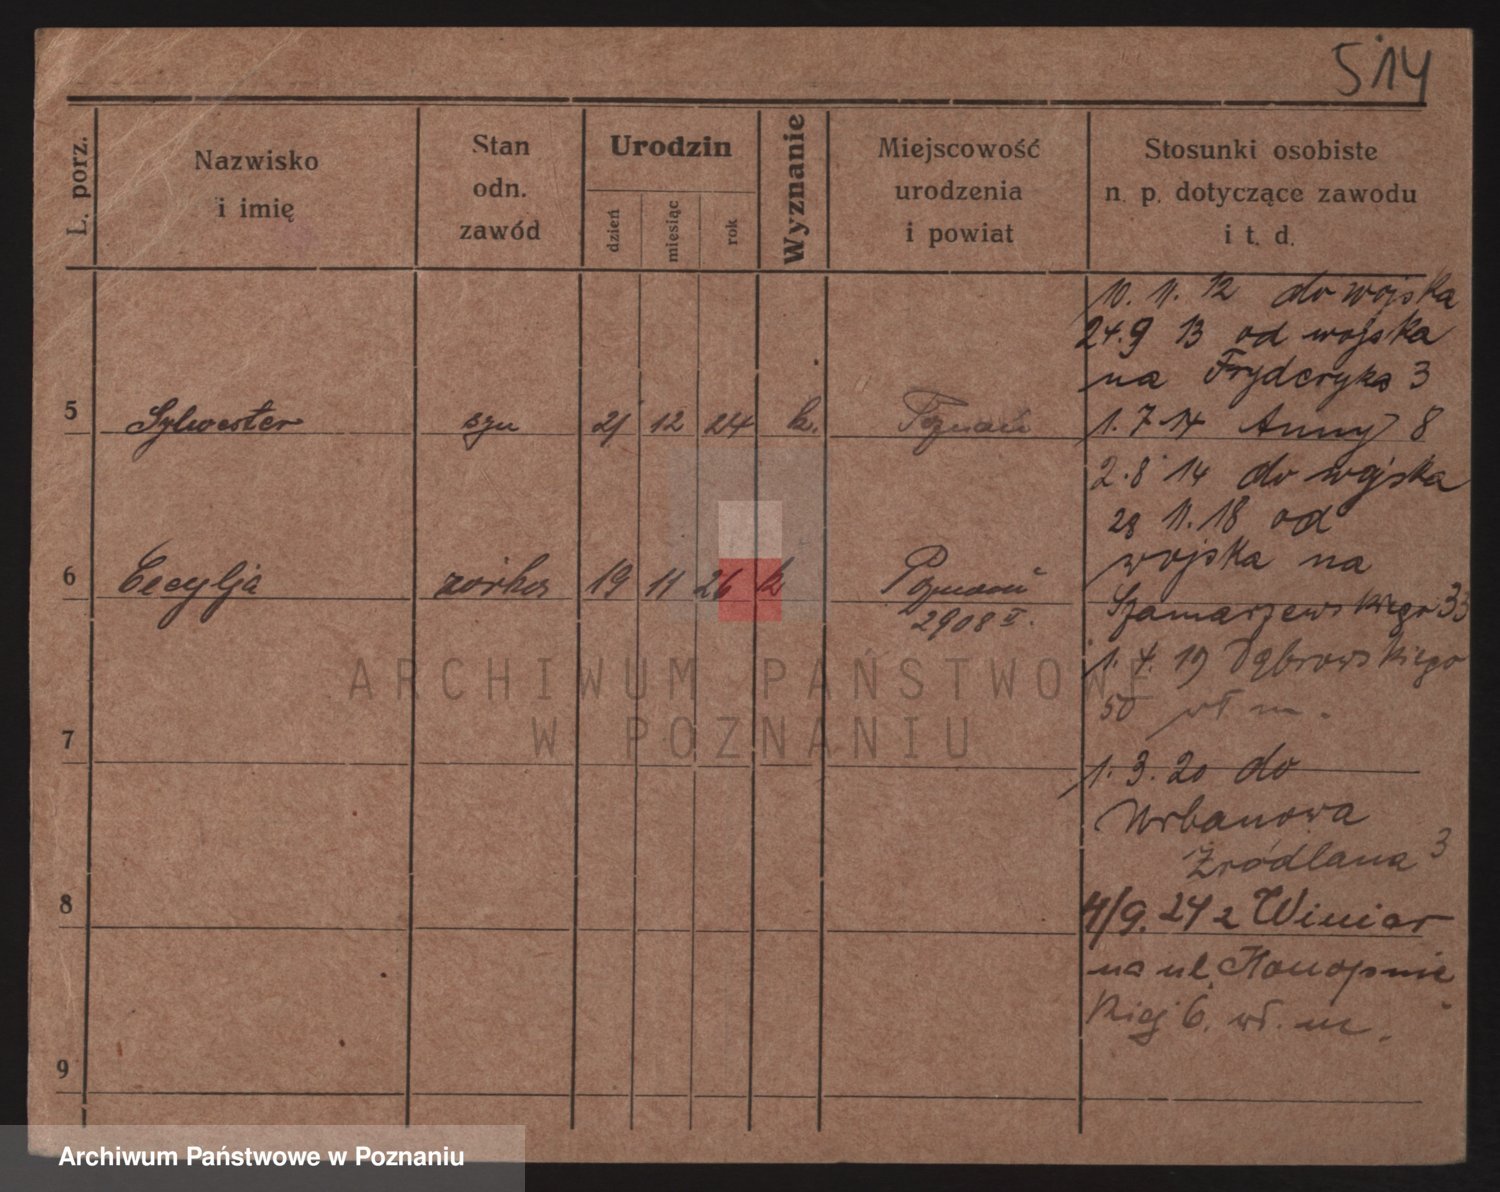 514
L. porz.
Nazwisko
i imię
Stan
odn.
zawód
Urodzin
dzień
miesiąc
rok
Wyznanie
Miejscowość
urodzenia
i powiat
Stosunki osobiste
n. p. dotyczące zawodu
i t. d.
5 Sylwester syn 21 12 24 k. Poznań
6 Cecylja córka 19 11 26 k Poznań
2908 II.
7
8
9
10. 11. 12 do wojska
24.9 13 od wojska
na Fryderyka 3
1. 7 14 Anny 8
2. 8 14 do wojska
28 11. 18 od
wojska na
Szamarzewskiego 33
1. 4. 19 Dąbrowskiego
50 wł m.
1. 3. 20 do
Urbanowa
Źródlana 3
4/9. 24 z Winiar
na ul. Konopnic
kiej 6. wł. m.
ARCHIWUM PAŃSTWOWE
W POZNANIU
Archiwum Państwowe w Poznaniu